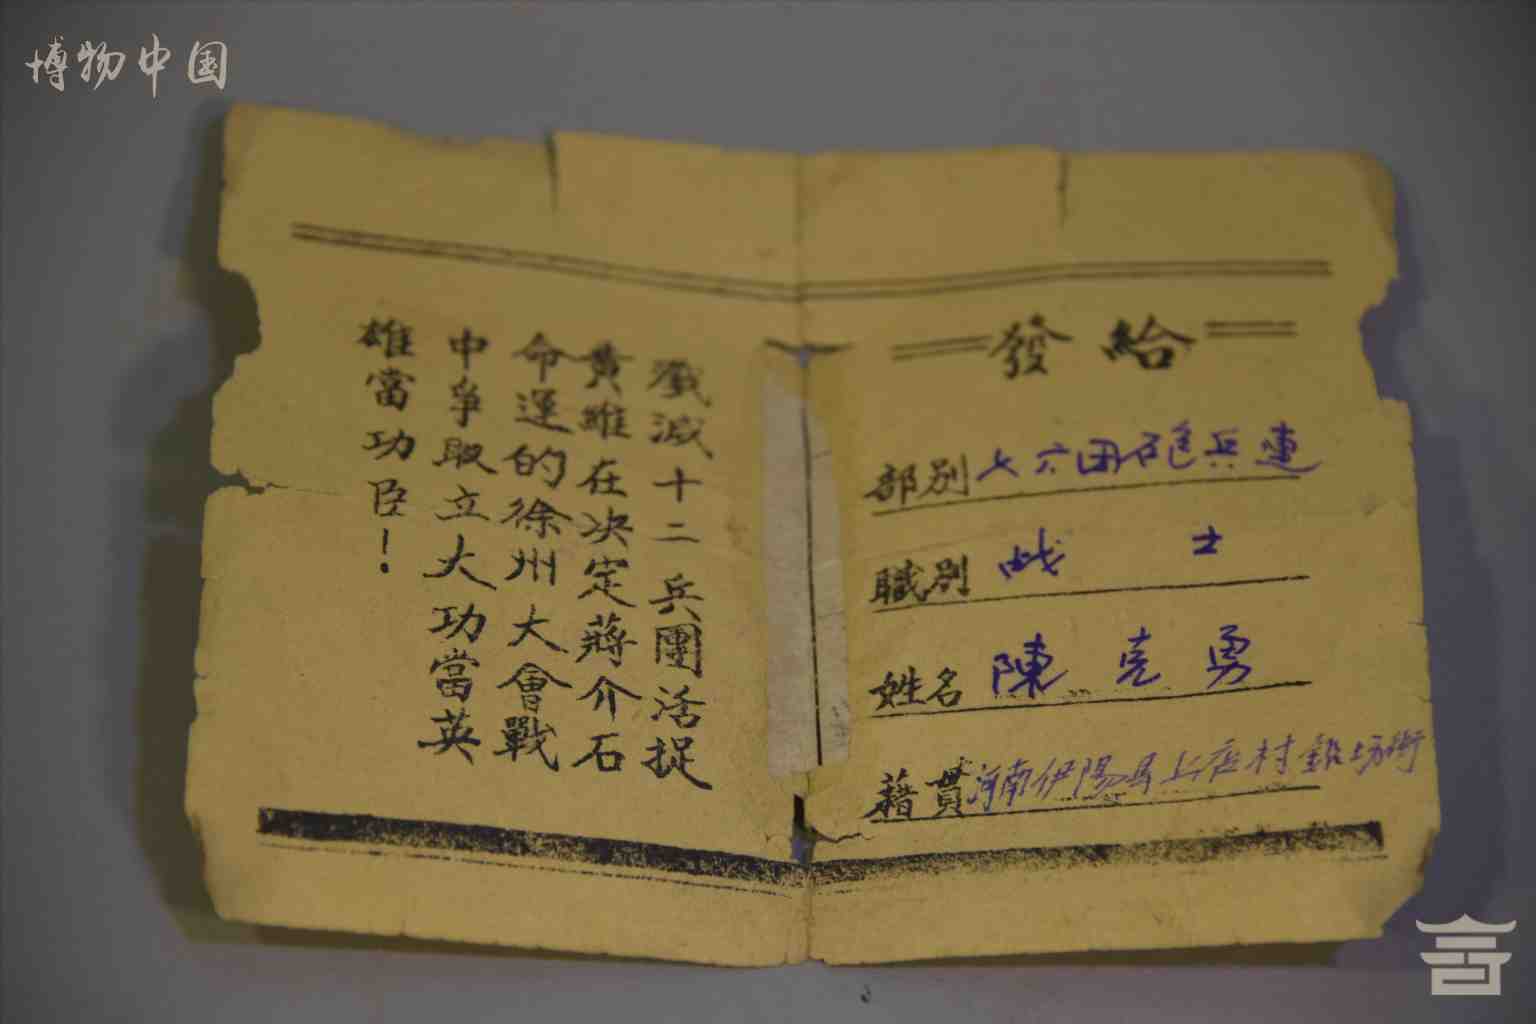 博物中国
發給
部別 七六团砲兵連
職別 战士
姓名 陳克勇
藉貫 河南伊陽县上店村 坊街
殲滅十二兵團活捉
黄維在决定蔣介石
命運的徐州大會戰
中爭取立大功當英
雄當功臣！